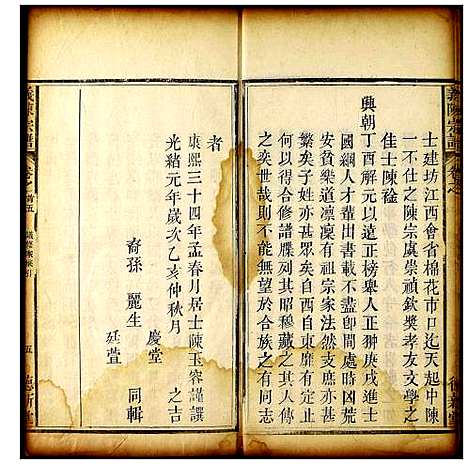 士建坊江西會省棉花市口迄天起中陳
一不仕之陳宗虞崇禎欽獎孝友文學之
佳士陳褣
興朝丁酉解元以遠正榜舉人正翀庚戌進士
國綱人才輩出書載不盡卽間處時凶荒
安貧樂道凛凜有祖宗家法然支席亦
繁矣子姓亦甚眾矣自西自東靡有定止
何以合修譜牒列其昭穆藏之其人傳
之奕世哉吾不能無望於合族之有同志
者
康熙三十四年孟春月居士陳玉容謹譔
光緒元年歲次乙亥仲秋月 之吉
裔孫 麗生 慶堂 廷萱 同輯
義陳宗譜
卷之首五
五
德新堂